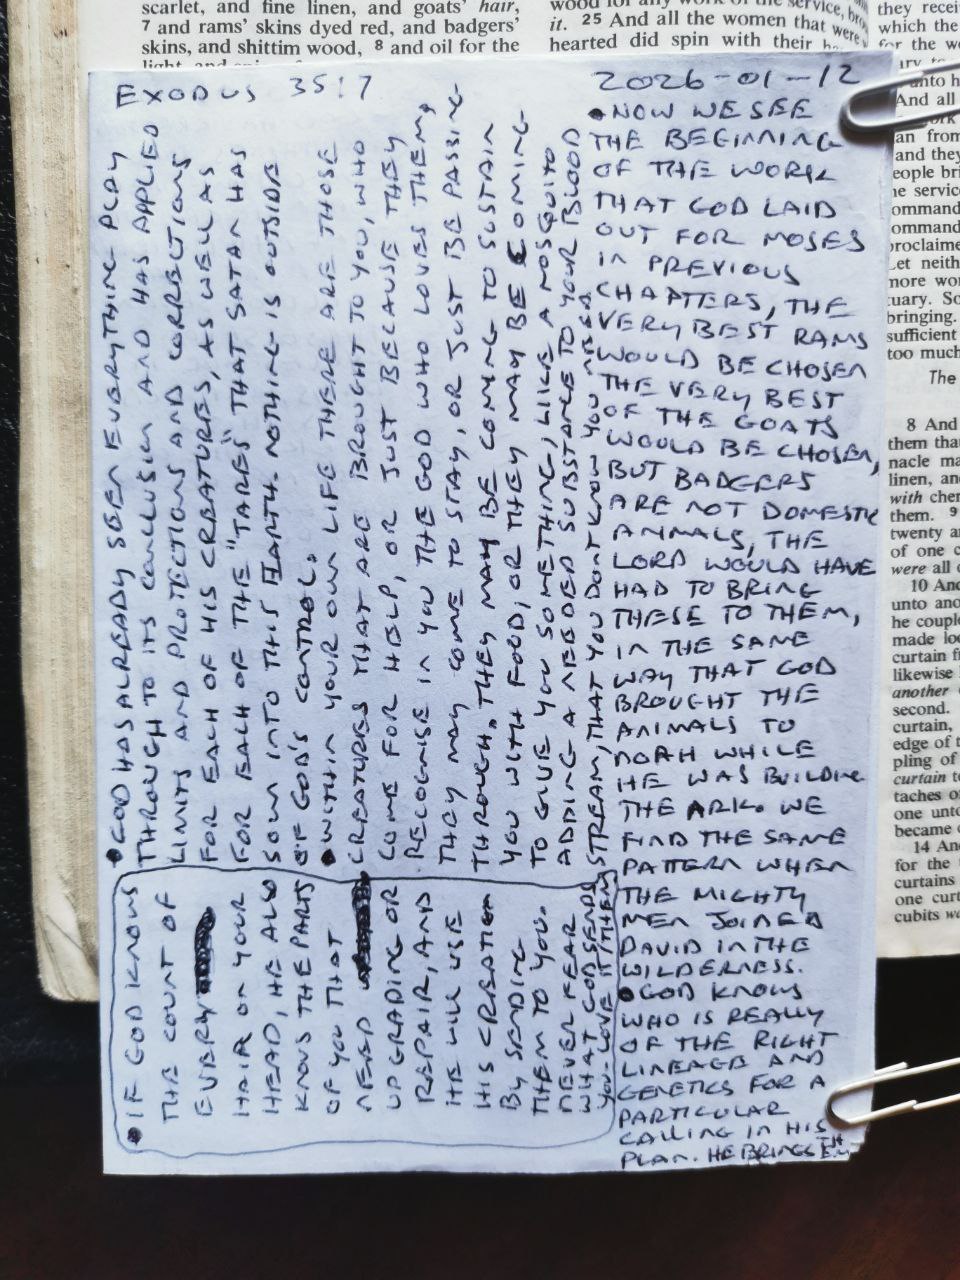 scarlet, and fine linen, and goats' hair,
7 and rams' skins dyed red, and badgers'
skins, and shittim wood, 8 and oil for the
wood for any work of the service,
it. 25 And all the women that were
hearted did spin with their
they recei
which the
for the w
EXODUS 35:7
2026-01-12
• NOW WE SEE
THE BEGINNING
OF THE WORK
THAT GOD LAID
OUT FOR MOSES
IN PREVIOUS
CHAPTERS, THE
VERY BEST RAMS
WOULD BE CHOSEN
THE VERY BEST
OF THE GOATS
WOULD BE CHOSEN,
BUT BADGERS
ARE NOT DOMESTIC
ANIMALS, THE
LORD WOULD HAVE
HAD TO BRING
THESE TO THEM,
IN THE SAME
WAY THAT GOD
BROUGHT THE
ANIMALS TO
NOAH WHILE
HE WAS BUILDING
THE ARK. WE
FIND THE SAME
PATTERN WHEN
THE MIGHTY
MEN JOINED
DAVID IN THE
WILDERNESS.
• GOD KNOWS
WHO IS REALLY
OF THE RIGHT
LINEAGE AND
GENETICS FOR A
PARTICULAR
CALLING IN HIS
PLAN. HE BRINGS THEM
• GOD HAS ALREADY SEEN EVERYTHING PLAY
THROUGH TO ITS CONCLUSION AND HAS APPLIED
LIMITS AND PROTECTIONS AND CORRECTIONS
FOR EACH OF HIS CREATURES, AS WELL AS
FOR EACH OF THE "TARES" THAT SATAN HAS
SOWN INTO THIS EARTH. NOTHING IS OUTSIDE
OF GOD'S CONTROL.
• WITHIN YOUR OWN LIFE THERE ARE THOSE
CREATURES THAT ARE BROUGHT TO YOU, WHO
COME FOR HELP, OR JUST BECAUSE THEY
RECOGNISE IN YOU THE GOD WHO LOVES THEM,
THEY MAY COME TO STAY, OR JUST BE PASSING
THROUGH. THEY MAY BE COMING TO SUSTAIN
YOU WITH FOOD, OR THEY MAY BE COMING
TO GIVE YOU SOMETHING, LIKE A MOSQUITO
ADDING A NEEDED SUBSTANCE TO YOUR BLOOD
STREAM, THAT YOU DON'T KNOW YOU NEED.
• IF GOD KNOWS
THE COUNT OF
EVERY
HAIR ON YOUR
HEAD, HE ALSO
KNOWS THE PARTS
OF YOU THAT
NEED
UPGRADING OR
REPAIR, AND
HE WILL USE
HIS CREATION
BY SENDING
THEM TO YOU.
NEVER FEAR
WHAT GOD SENDS
YOU - LOVE THEM
unto h
And all
an from
and they
people bri
service
ommand
ommand
proclaime
Let neith
more wor
tuary. So
bringing.
sufficient
too much
The
8 And
them tha
nacle ma
linen, an
with cher
them. 9
twenty a
of one c
were all o
10 And
unto ano
he couple
made loo
curtain f
likewise
another
second.
curtain,
edge of t
pling of
curtain to
taches of
one unto
became
14 And
for the
curtains
one curt
cubits wa